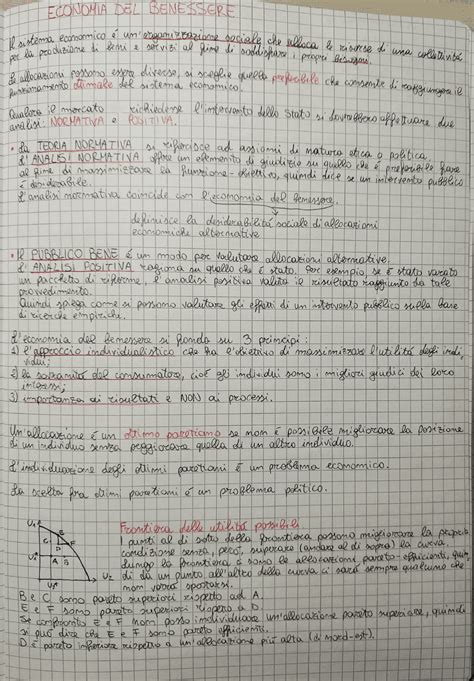 ECONOMIA DEL BENESSERE
Il sistema economico é un'organizzazione sociale che alloca le risorse di una collettività
per la produzione di beni e servizi al fine di soddisfare i propri bisogni.
Le allocazioni possono essere diverse, si sceglie quella preferibile che consente di raggiungere il
funzionamento ottimale del sistema economico.
Qualora il mercato richiedesse l'intervento dello Stato si dovrebbero effettuare due
analisi: NORMATIVA e POSITIVA.
• La TEORIA NORMATIVA si riferisce ad assiomi di natura etica o politica.
L'ANALISI NORMATIVA offre un elemento di giudizio su quello che é preferibile fare
al fine di massimizzare la funzione-obiettivo, quindi dice se un intervento pubblico
é desiderabile.
L'analisi normativa coincide con l'economia del benessere.
definisce la desiderabilità sociale di allocazioni
economiche alternative
• Il PUBBLICO BENE é un modo per valutare allocazioni alternative.
L'ANALISI POSITIVA ragiona su quello che é stato. Per esempio, se é stato varato
un pacchetto di riforme, l'analisi positiva valuta il risultato raggiunto da tale
provvedimento.
Quindi spiega come si possono valutare gli effetti di un intervento pubblico sulla base
di ricerche empiriche.
L'economia del benessere si fonda su 3 principi:
1) l'approccio individualistico che ha l'obiettivo di massimizzare l'utilità degli indi_
vidui;
2) la sovranità del consumatore, cioé gli individui sono i migliori giudici dei loro
interessi;
3) importanza ai risultati e NON ai processi.
Un'allocazione é un ottimo paretiano se non é possibile migliorare la posizione
di un individuo senza peggiorare quella di un altro individuo.
L'individuazione degli ottimi paretiani é un problema economico.
La scelta fra ottimi paretiani é un problema politico.
Frontiera delle utilità possibili
I punti al di sotto della frontiera possono migliorare la propria
condizione senza, però, superare (andare al di sopra) la curva
Lungo la frontiera ci sono le allocazioni pareto-efficienti, quin_
di da un punto all'altro della curva ci sarà sempre qualcuno che
non vorrà spostarsi.
U1
E
B
F
C
D
A
U2
B e C sono pareto superiori rispetto ad A.
E e F sono pareto superiori rispetto a D.
Se confronto E e F non posso individuare un'allocazione pareto superiore, quindi
si può dire che E e F sono pareto efficienti.
D é pareto inferiore rispetto a un'allocazione più alta (di nord-est).